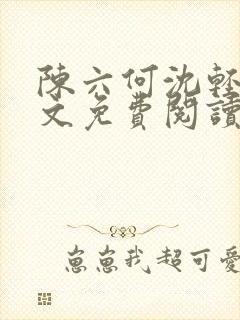 陳六何沈輕
文免費閱讀
崽崽我超可愛